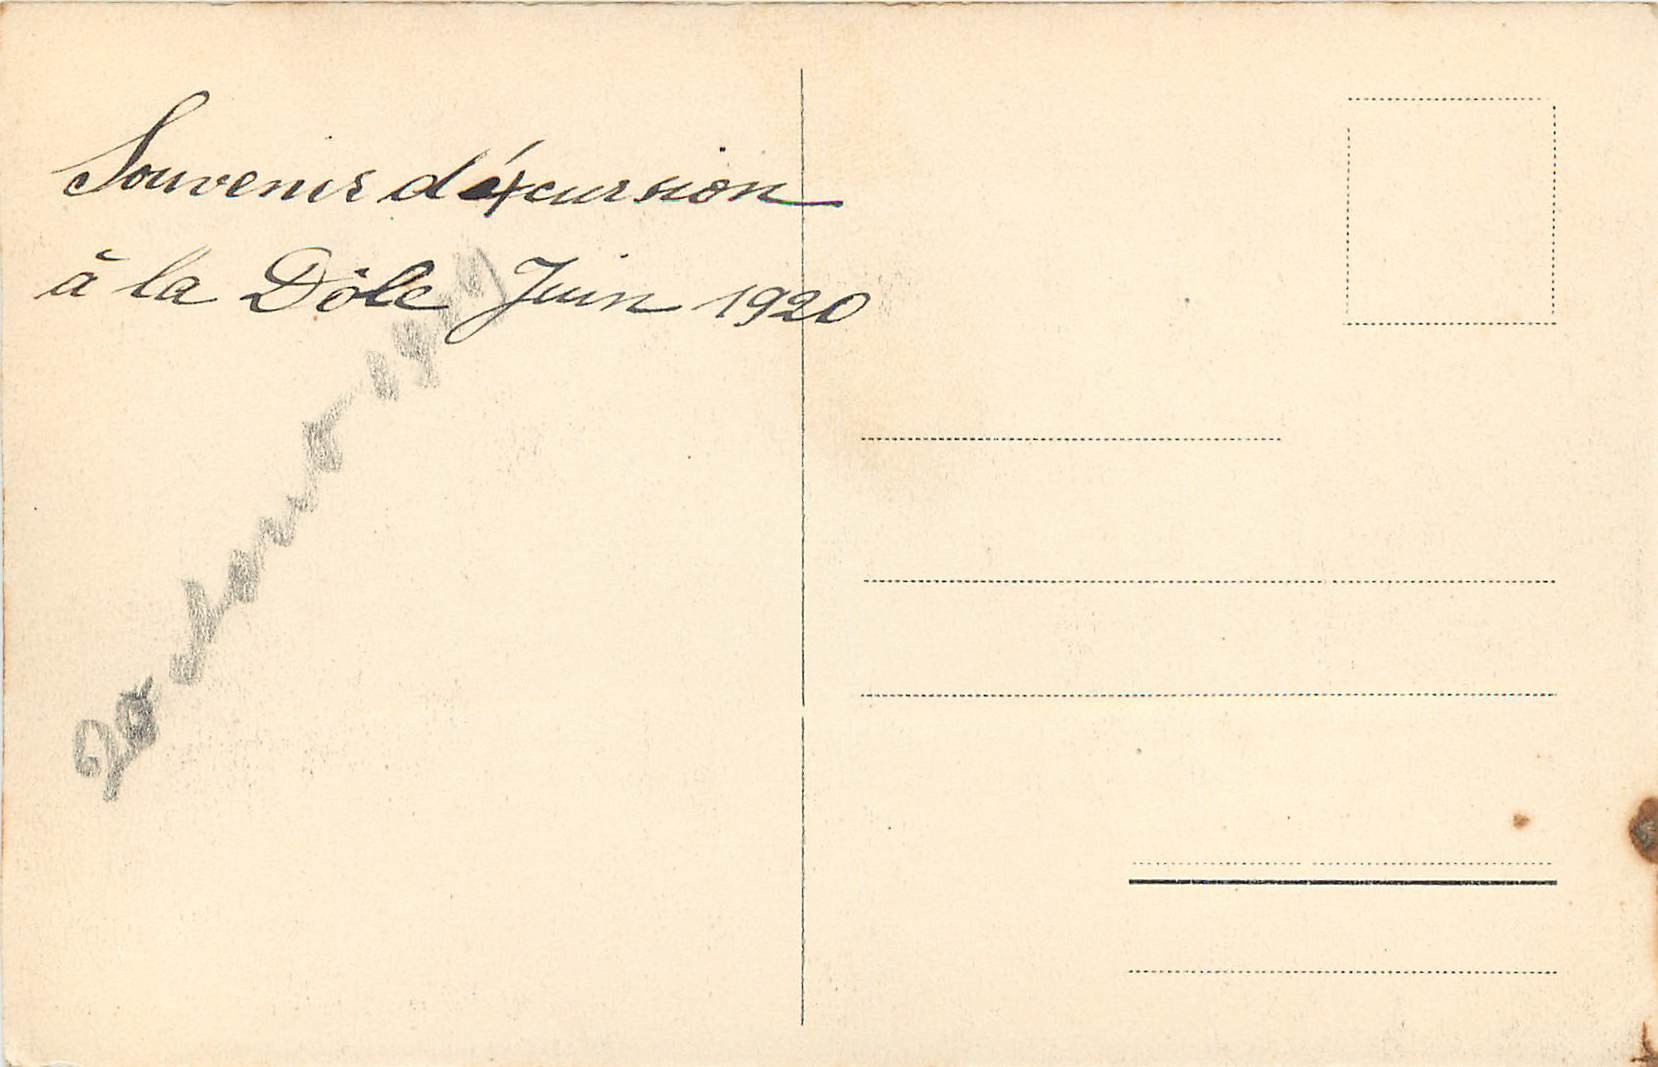 Souvenir d'éxcursion
à la Dôle Juin 1920
20